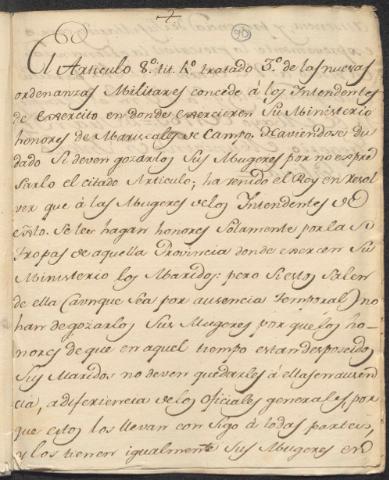 El Articulo 8.º tit. 1.º tratado 3.º de las nuevas
ordenanzas Militares concede á los Intendentes
de Exercito en donde exercieren Su Ministerio
honores de Mariscales de Campo. Y haviendose du
dado Si deven gozarlos Sus Mugeres por no expre
sarlo el citado Articulo; ha tenido el Rey en resol
ver que á las Mugeres de los Intendentes de
exto. Se les hagan honores Solamente por la
Tropas de aquella Provincia donde exercen Su
Ministerio los Maridos: pero Si estos Salen
de ella (aunque Sea por ausencia temporal) no
han de gozarlos Sus Mugeres por que los ho-
nores de que en aquel tiempo estan desposeidos
Sus Maridos no deven quedarles á ellas en ausen
cia, a diferiencia de los Oficiales generales, por
que estos los llevan con Sigo á todas partes,
y los tienen igualmente Sus Mugeres en